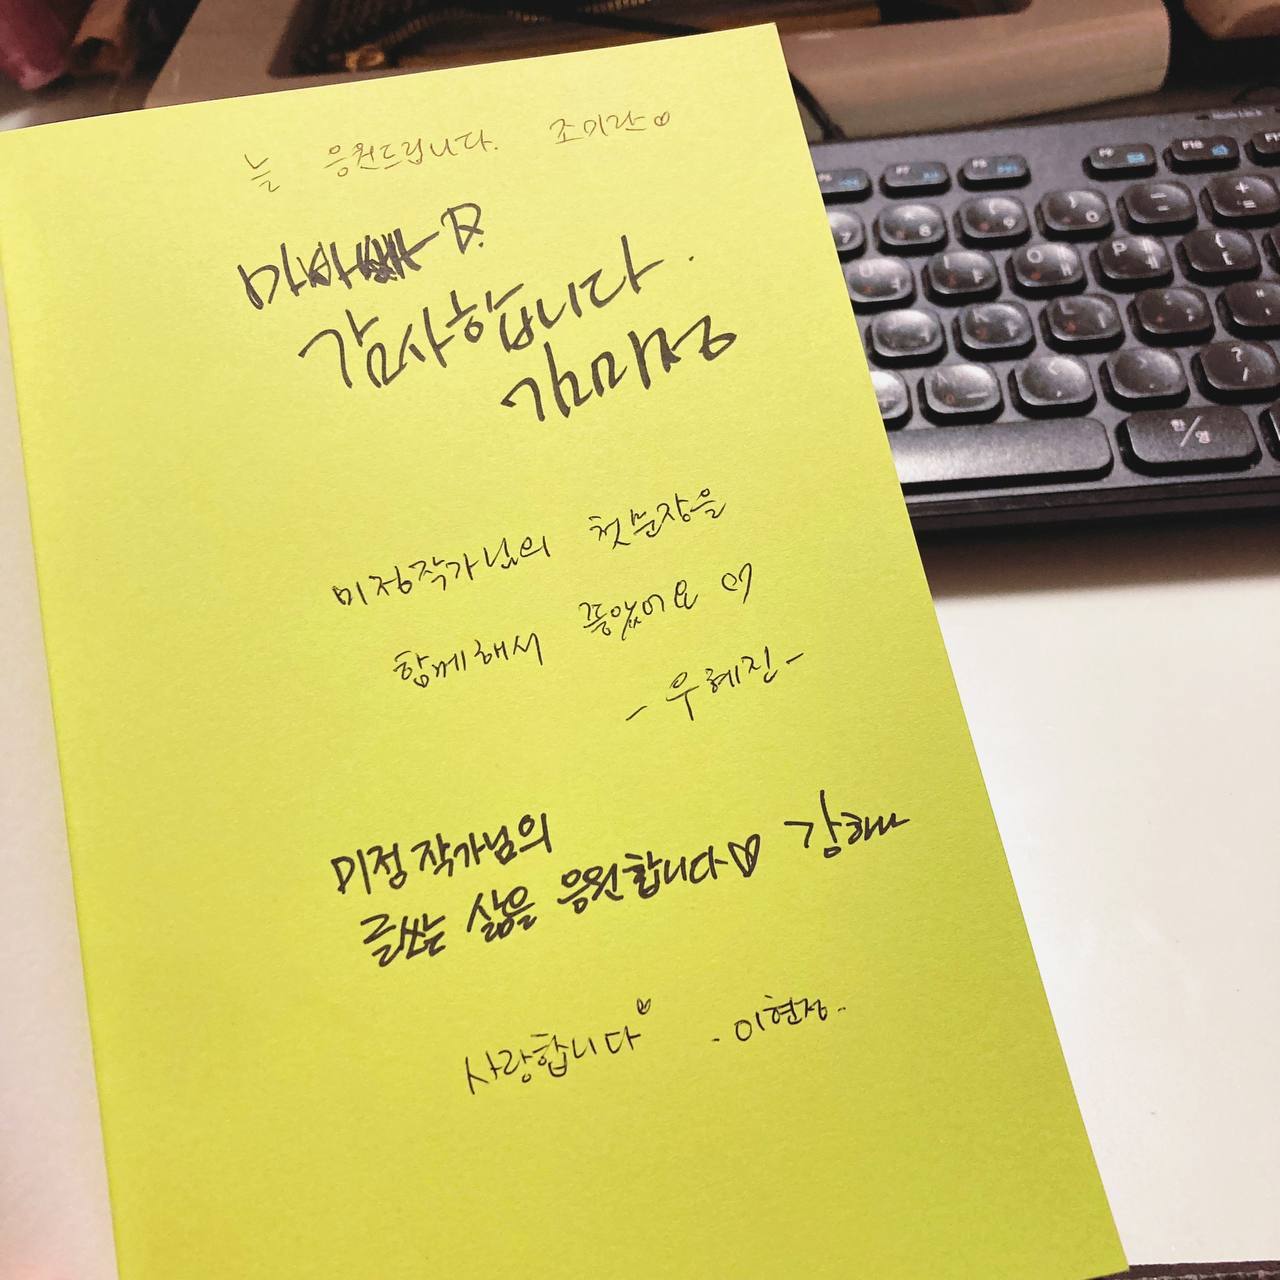 늘 응원드립니다. 조미란
감사합니다.
김미정
미정작가님의 첫문장을
함께해서 좋았어요
- 우혜진 -
미정 작가님의
글쓰는 삶을 응원합니다 강하나
사랑합니다 - 이현정 -
한/영